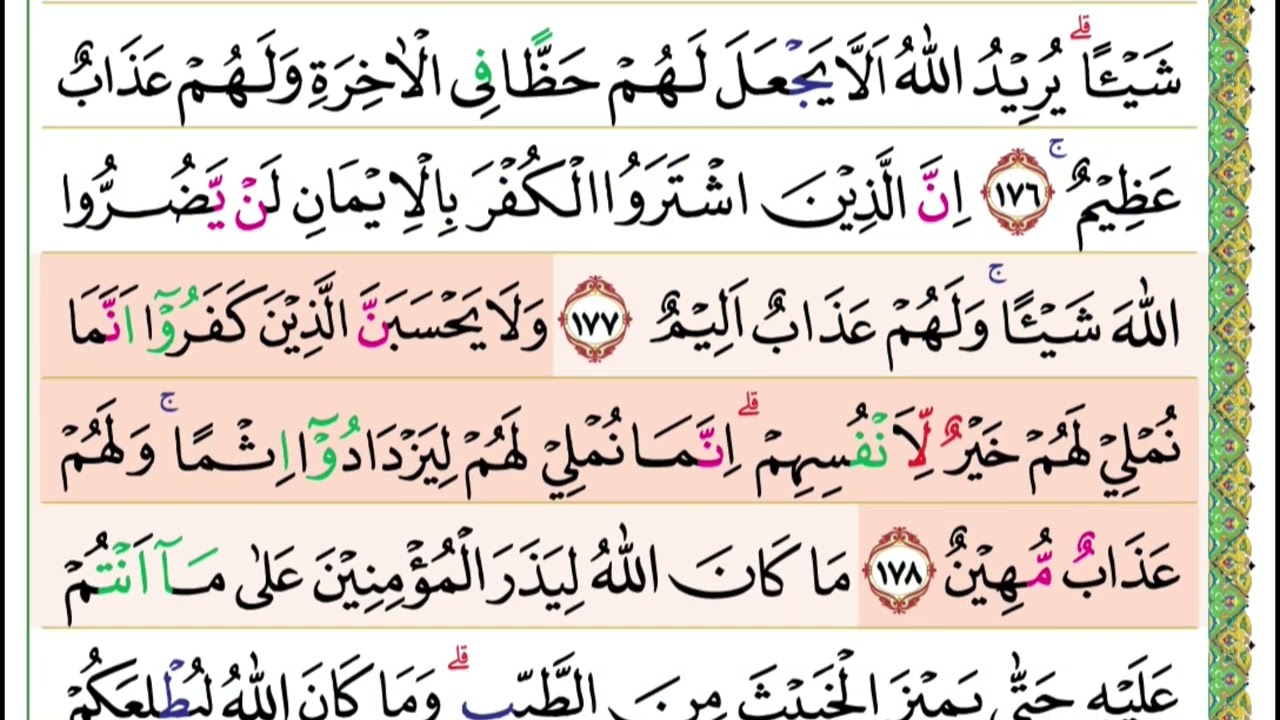 شَيْـًٔا ؕ يُرِيْدُ اللّٰهُ اَلَّا يَجْعَلَ لَهُمْ حَظًّا فِى الْاٰخِرَةِ وَلَهُمْ عَذَابٌ
عَظِيْمٌ ۚ ﴿١٧٦﴾ اِنَّ الَّذِيْنَ اشْتَرَوُا الْكُفْرَ بِالْاِيْمَانِ لَنْ يَّضُرُّوا
اللّٰهَ شَيْـًٔا ۚ وَلَهُمْ عَذَابٌ اَلِيْمٌ ﴿١٧٧﴾ وَلَا يَحْسَبَنَّ الَّذِيْنَ كَفَرُوْٓا اَنَّمَا
نُمْلِيْ لَهُمْ خَيْرٌ لِّاَنْفُسِهِمْ ؕ اِنَّمَا نُمْلِيْ لَهُمْ لِيَزْدَادُوْٓا اِثْمًا ۚ وَلَهُمْ
عَذَابٌ مُّهِيْنٌ ﴿١٧٨﴾ مَا كَانَ اللّٰهُ لِيَذَرَ الْمُؤْمِنِيْنَ عَلٰى مَآ اَنْتُمْ
عَلَيْهِ حَتّٰى يَمِيْزَ الْخَبِيْثَ مِنَ الطَّيِّبِ ؕ وَمَا كَانَ اللّٰهُ لِيُطْلِعَكُمْ